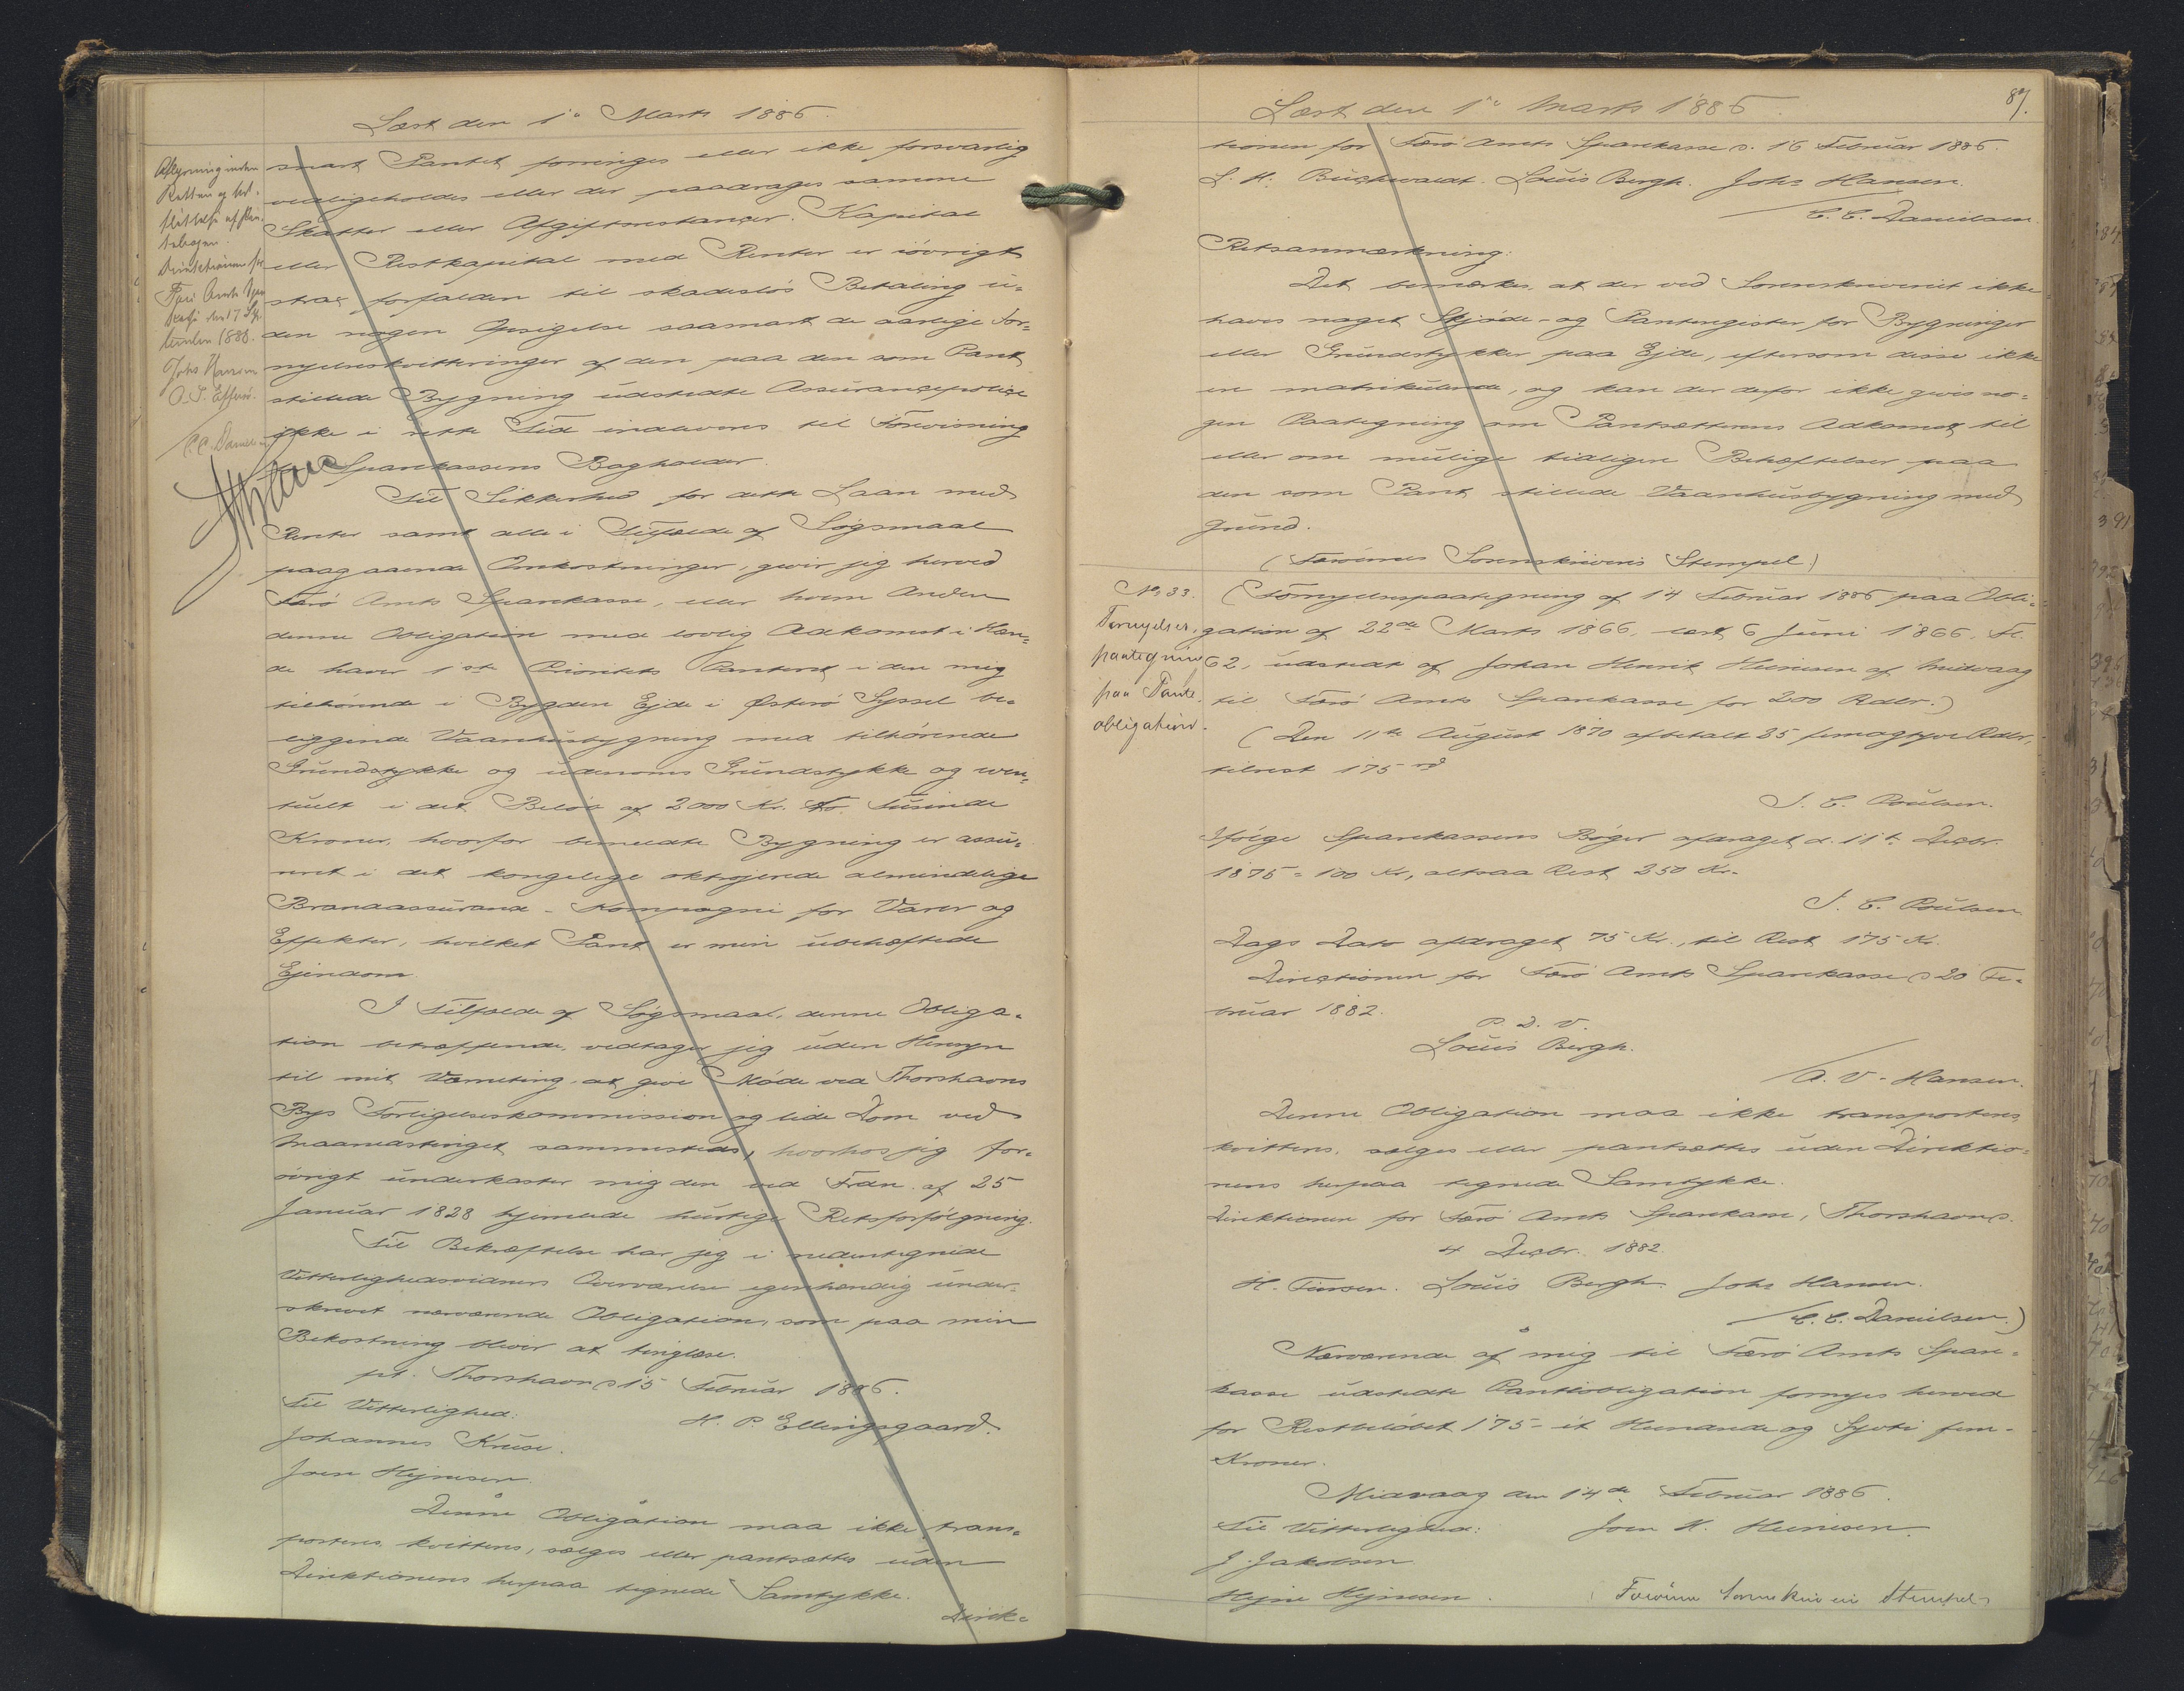 Læst den 1ᵉ Marts 1886.
Aflysning inden
Retten og
af Pan-
tebogen.
Direktionen for
Færø Amts Spar
kasse den 17 Sep-
tember 1888.
Johs Hansen
O. J. Effersø.
C. C. Danielsen
snart Pantet forringes eller ikke forsvarlig
vedligeholdes eller der paadrages samme
Skatter eller Afgiftsrestancer. Kapital
eller Restkapital med Renter er iøvrigt
strax forfalden til skadesløs Betaling u-
den nogen Opsigelse saasnart de aarlige For-
nyelseskvitteringer af den paa den som Pant
stillede Bygning udstedte Assurancepolice
ikke i rette Tid indleveres til Forevisning
Sparekassens Bogholder.
Til Sikkerhed for dette Laan med
Renter samt alle i Tilfælde af Søgsmaal
paagaaende Omkostninger, giver jeg herved
Færø Amts Sparekasse, eller hvem Anden
denne Obligation med lovlig Adkomst i Hæn-
de haver 1ste Prioritets Panteret i den mig
tilhørende i Bygden Ejde i Østerø Syssel be-
liggende Vaanhusbygning med tilhørende
Grundstykke og udenoms Grundstykke og even-
tuelt i det Beløb af 2000 Kr. To Tusinde
Kroner, hvorfor bemeldte Bygning er assu-
reret i det kongelige oktrojerede almindelige
Brandassurance-Kompagni for Varer og
Effekter, hvilket Pant er min ubehæftede
Ejendom.
I Tilfælde af Søgsmaal, denne Obliga-
tion betræffende, vedtager jeg uden Hensyn
til mit Værneting at give Møde ved Thorshavns
Bys Forligelseskommission og lide Dom ved
Maanedstinget sammesteds, hvorhos jeg for-
øvrigt underkaster mig den ved Frdn. af 25
Januar 1828 hjemlede hurtige Retsforfølgning.
Til Bekræftelse har jeg i nedentegnede
Vitterlighedsvidners Overværelse egenhændig under-
skrevet nærværende Obligation, som paa min
Bekostning bliver at tinglæse.
pt. Thorshavn d 15 Februar 1886.
Til Vitterlighed: H. P. Ellingsgaard.
Johannes Kruse.
Joen Hejnesen.
Denne Obligation maa ikke trans-
porteres, kvitteres, sælges eller pantsættes uden
Direktionens herpaa tegnede Samtykke.
Direk-
87.
Læst den 1ᵉ Marts 1886.
tionen for Færø Amts Sparekasse d. 16 Februar 1886.
L. H. Buchwaldt. Louis Bergh. Johs Hansen.
/ C. C. Danielsen.
Retsanmærkning:
Det bemærkes, at der ved Sorenskriveriet ikke
haves noget Skjøde- og Panteregister for Bygninger
eller Grundstykker paa Ejde, eftersom disse ikke
er matrikulerede, og kan der derfor ikke gives no-
gen Paategning om Pantsætterens Adkomst til
eller om mulige tidligere Behæftelser paa
den som Pant stillede Vaanhusbygning med
Grund.
(Færøernes Sorenskriveris Stempel)
No 33.
Fornyelses-
paategning
paa Pante-
obligation.
(Fornyelsespaategning af 14 Februar 1886 paa Obli-
gation af 22de Marts 1866, læst 6 Juni 1866, Fl.
62, udstedt af Johan Henrik Heinesen af Midvaag
til Færø Amts Sparekasse for 200 Rdlr.)
(Den 11te August 1870 afbetalt 25 femogtyve Rdlr,
tilrest 175 rd
J. C. Poulsen.
Ifølge Sparekassens Bøger afdraget d. 11te Decbr.
1875 = 100 Kr, altsaa Rest 250 Kr.
J. C. Poulsen
Dags Dato afdraget 75 Kr., til Rest 175 Kr.
Directionen for Færø Amts Sparekasse d 20 Fe-
bruar 1882.
P. D. V.
Louis Bergh.
/ A. V. Hansen.
Denne Obligation maa ikke transporteres,
kvitteres, sælges eller pantsættes uden Direktio-
nens herpaa tegnede Samtykke.
Direktionen for Færø Amts Sparekasse, Thorshavn d.
4 Decbr. 1882.
H. Finsen. Louis Bergh. Johs Hansen.
/ C. C. Danielsen.)
Nærværende af mig til Færø Amts Spare-
kasse udstedte Panteobligation fornyes herved
for Restbeløbet 175 = et Hundrede og Syvti fem =
Kroner.
Midvaag den 14de Februar 1886.
Til Vitterlighed: Joen H. Heinesen.
J. Jakobsen
Hejne Hejnesen. (Færøernes Sorenskriveris Stempel)